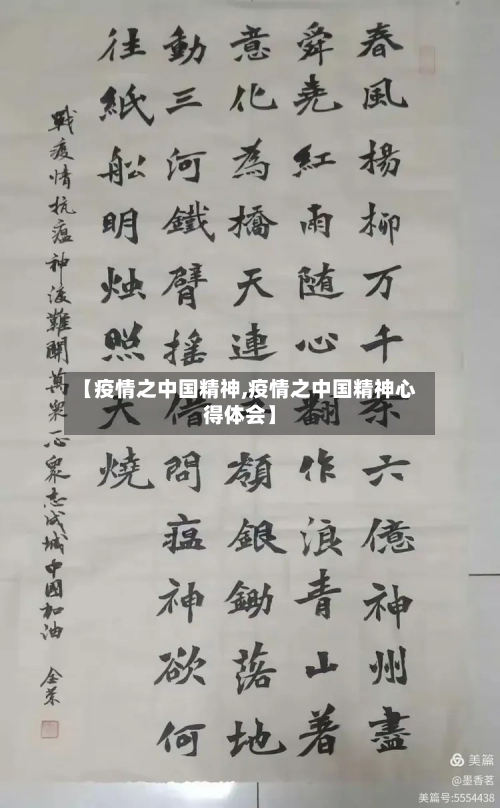 春風楊柳万千条六億神州盡
舜堯紅雨随心翻作浪青山着
意化為橋天連嶺銀鋤落地
動三河鐵臂摇借問瘟神欲何
往紙船明烛照天燒
戰疫情抗瘟神渡難關萬衆一心衆志成城中國加油
【疫情之中国精神,疫情之中国精神心
得体会】
美篇
@墨香茗
美篇号:5554438